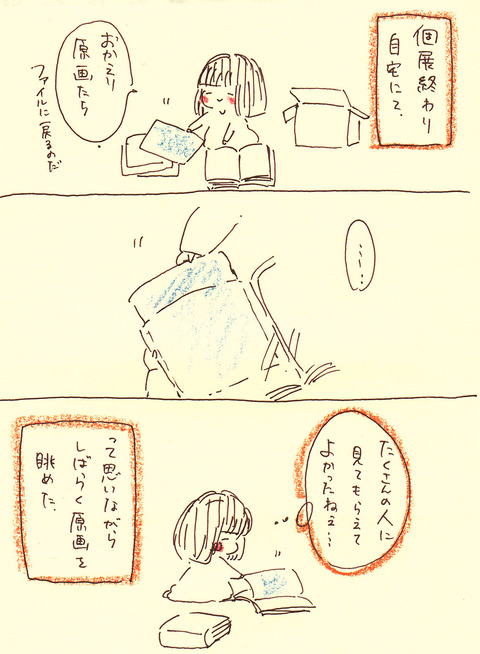 個展終わり
自宅にて、
おかえり
原画たち
ファイルに戻るのだ
う〜…
たくさんの人に
見てもらえて
よかったねぇ…
って思いながら
しばらく原画を
眺めた。